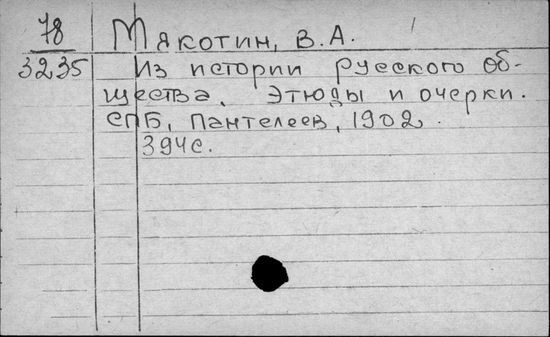 78
3235
Мякотин, В.А.
Из истории русского об-
щества. Этюды и очерки.
СПБ, Пантелеев, 1902.
394с.